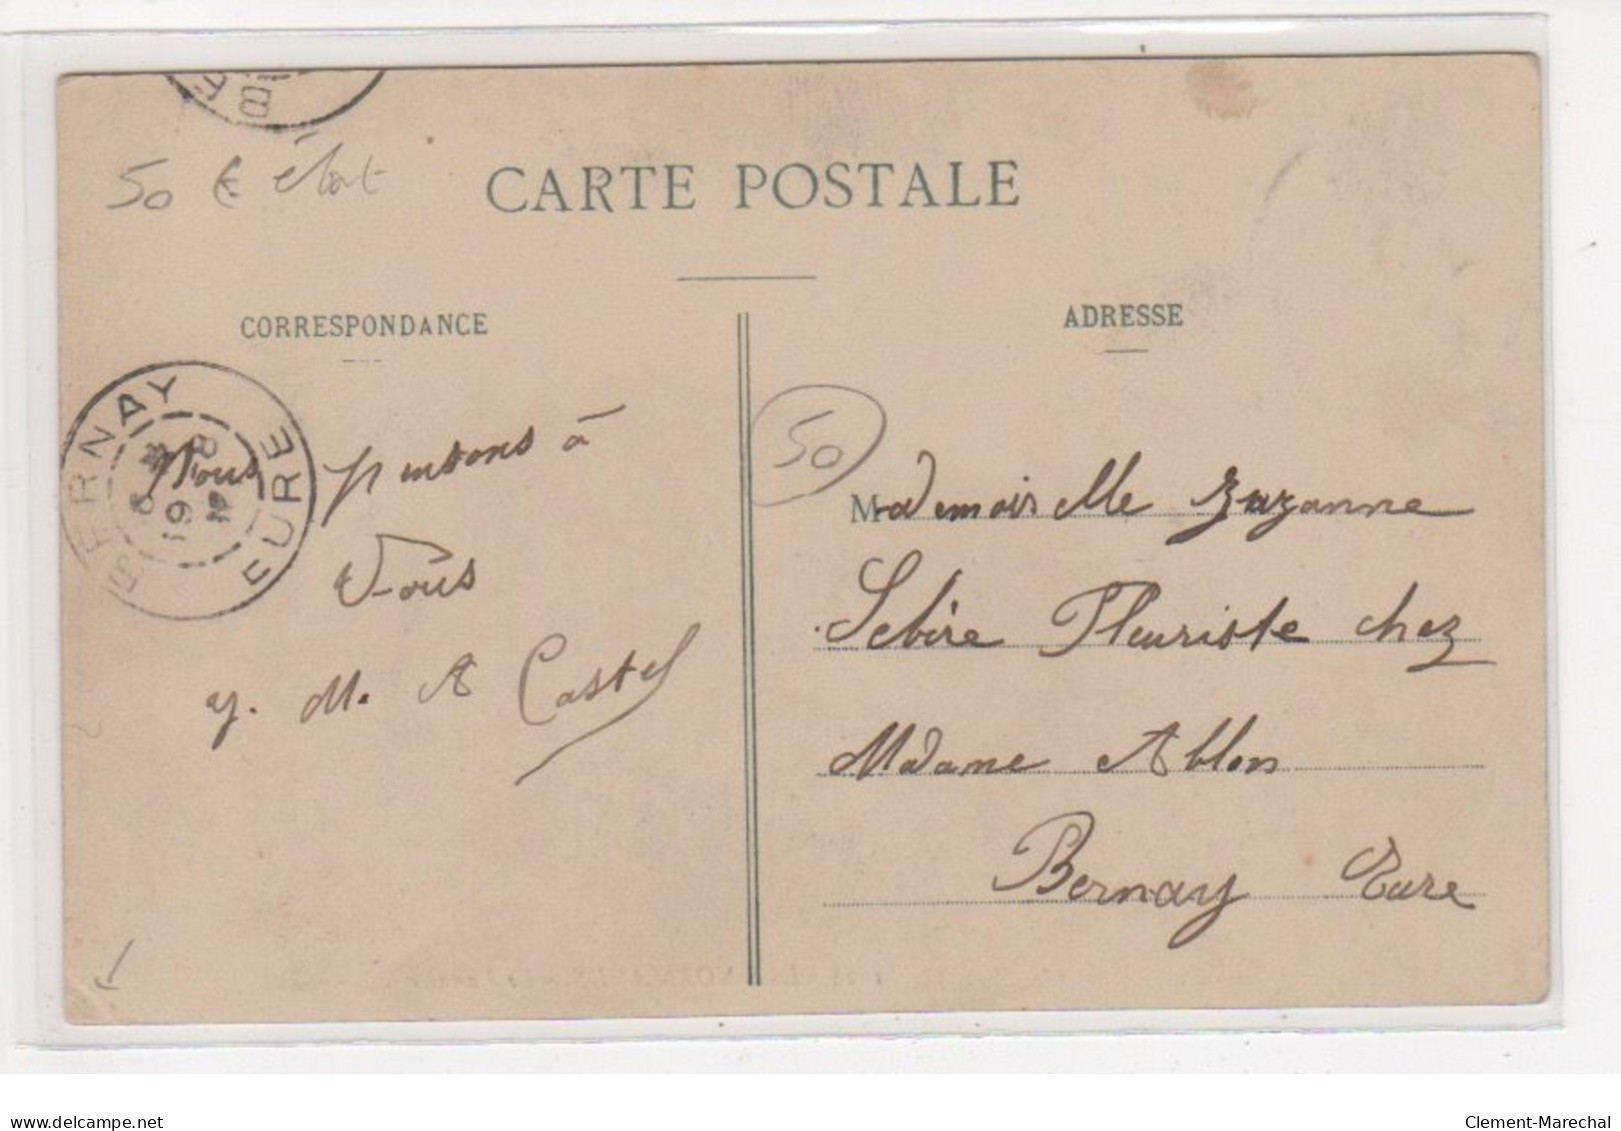 BE
50 € état
CARTE POSTALE
CORRESPONDANCE
ADRESSE
BERNAY
EURE
50
Nous pensons à
Vous
y. M. A Castel
Mademoiselle Zuzanne
Lebire Fleuriste chez
Madame Ablon
Bernay Eure
delcampe.net
Clement-Marechal